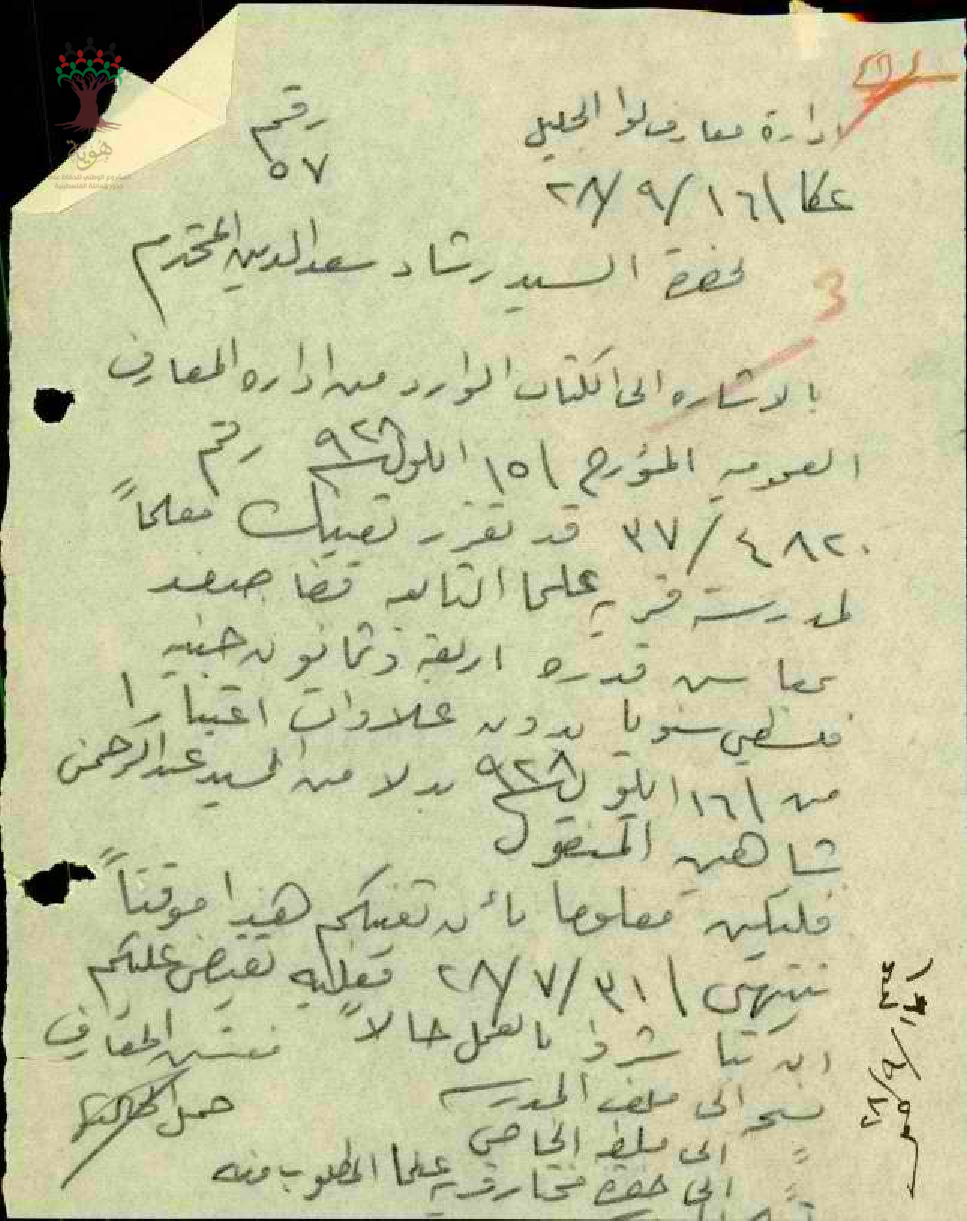 ادارة معارف لوا الجليل
رقم
٥٧
عكا ١٦/٩/٢٨
لحضرة السيد رشاد سعد الدين المحترم
3
بالاشاره الى الكتاب الوارد من اداره المعارف
العموميه المؤرخ ١٥ ايلول ٩٢٨ رقم
٣٧/٤٨٢٠ قد تقرر تعيينك معلماً
لمدرسة قرية علما التابعه قضا صفد
بمعاش قدره اربعة وثمانون جنيه
فلسطيني سنويا بدون علاوات اعتبارا
من ١٦ ايلول ٩٢٨ بدلا من السيد عبد الرحمن
شاهين المنقول
فليكن معلوما بأن تعينكم هذا موقتاً
ينتهي ٣١/٧/٢٨ فعليه يقتضي عليكم
ان تباشروا بالعمل حالاً
مفتش المعارف
الى ملف المدرسه
الى ملفه الخاص
الى حضرة مختار قرية علما المطلوب منه
هوية